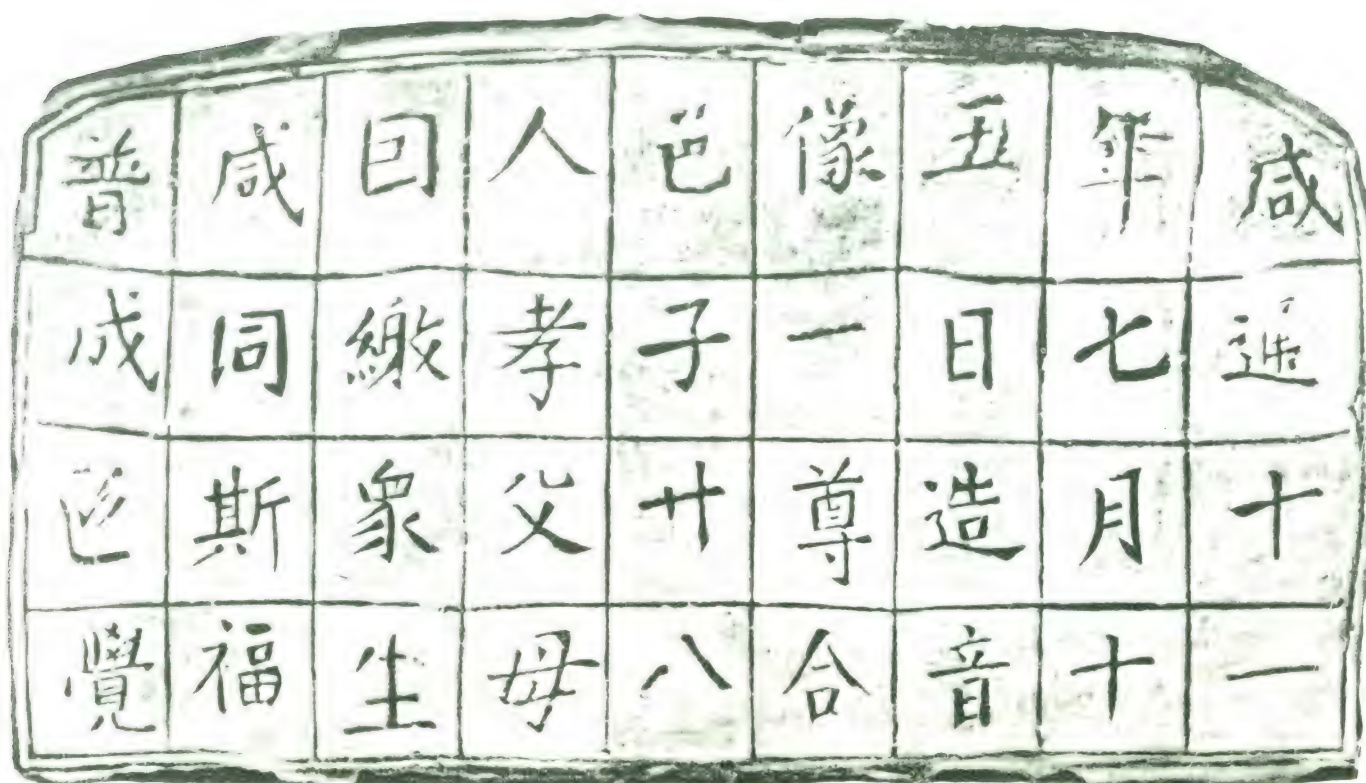 咸通十一
年七月十
五日造音
像一尊合
邑子廿八
人孝父母
囙繳衆生
咸同斯福
普成覺